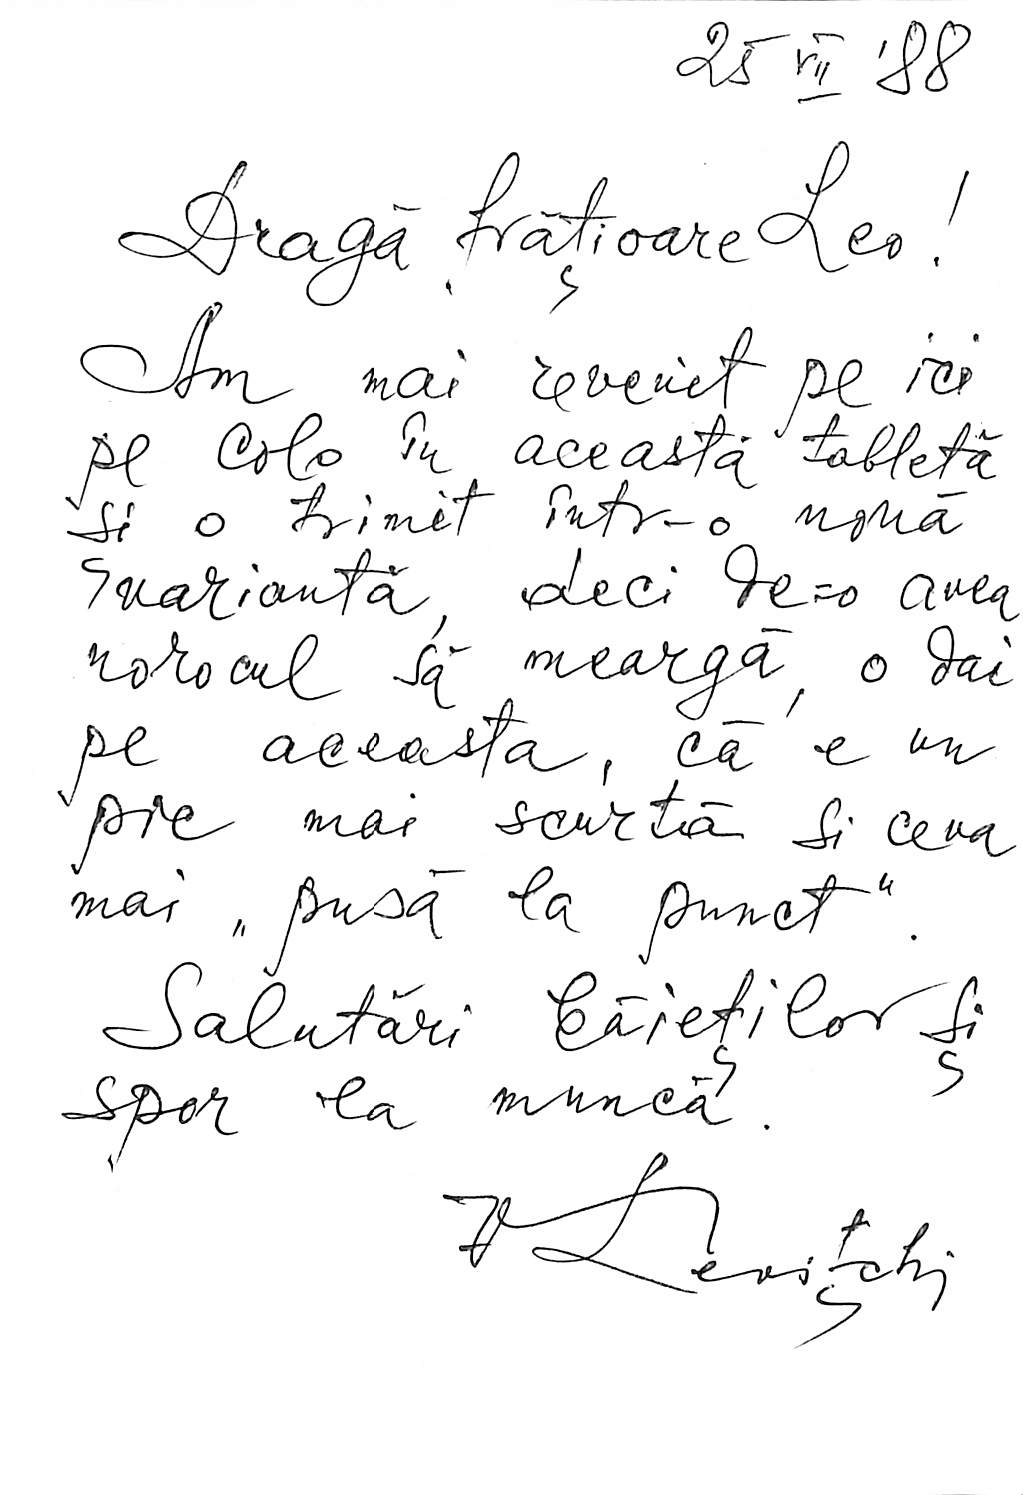 25 VII '88
Dragă frățioare Leo!
Am mai revenit pe ici
pe colo în această tabletă
și o trimit într-o nouă
variantă, deci de-o avea
norocul să meargă, o dai
pe aceasta, că e un
pic mai scurtă și ceva
mai „pusă la punct“.
Salutări băieților și
spor la muncă.
V Levițchi